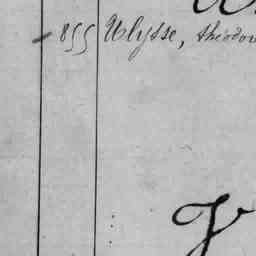 855 Ulysse, théodor
V